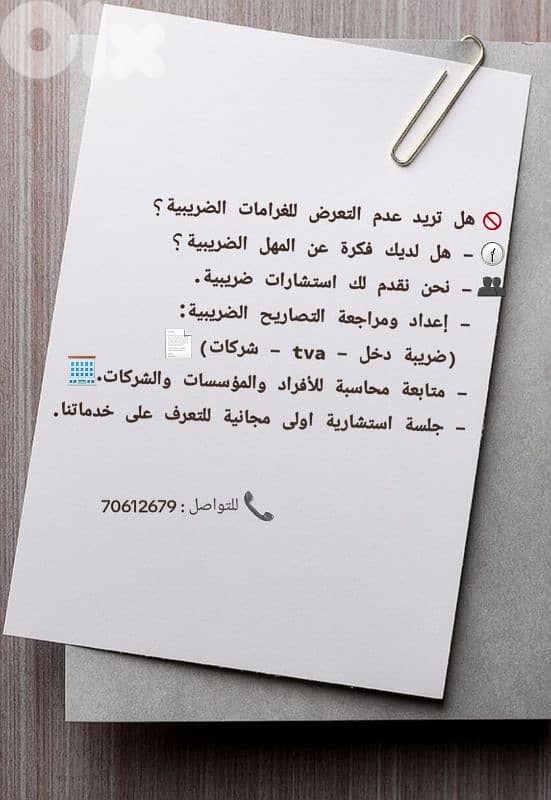 olx
هل تريد عدم التعرض للغرامات الضريبية؟
- هل لديك فكرة عن المهل الضريبية؟
- نحن نقدم لك استشارات ضريبية.
- إعداد ومراجعة التصاريح الضريبية:
(ضريبة دخل - tva - شركات)
- متابعة محاسبة للأفراد والمؤسسات والشركات.
- جلسة استشارية اولى مجانية للتعرف على خدماتنا.
للتواصل : 70612679